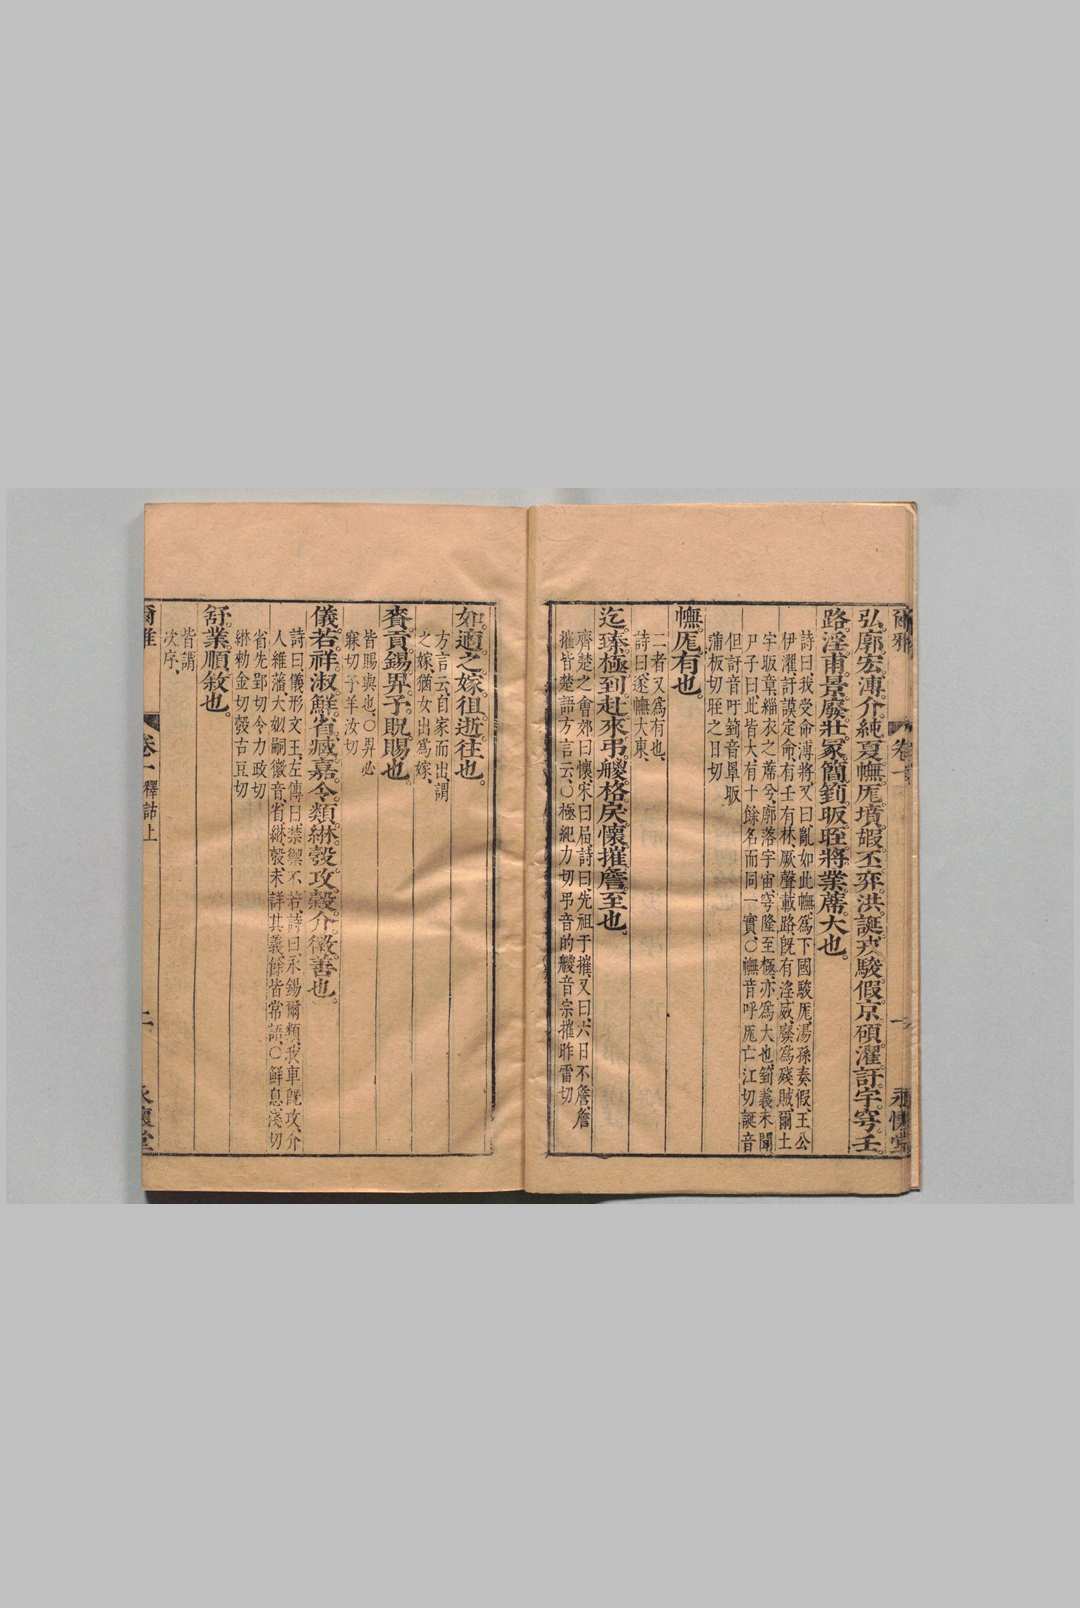 爾雅
卷一
一
永懷堂
弘。廓。宏。溥。介。純。夏。幠。厖。墳。嘏。丕。弈。洪。誕。戎。駿。假。京。碩。濯。訏。宇。穹。壬。
路。淫。甫。景。廢。壯。冢。簡。箌。昄。晊。將。業。蓆。大也。
詩曰我受命溥將、又曰亂如此幠、爲下國駿厖、湯孫奏假、王公
伊濯、訏謨定命、有壬有林、厥聲載路、旣有淫威、廢爲殘賊、爾土
宇昄章、緇衣之蓆兮、廓落宇宙、穹隆至極、亦爲大也、箌義未聞、
尸子曰、此皆大有十餘名而同一實、〇幠音呼厖亡江切誕音
但訏音吁箌音罩昄
蒲板切晊之日切
幠。厖。有也。
二者又爲有也、
詩曰、遂幠大東、
迄。臻。極。到。赴。來。弔。艐。格。戾。懷。摧。詹。至也。
齊楚之會郊曰懷、宋曰屆、詩曰先祖于摧、又曰、六日不詹、詹
摧皆楚語、方言云、〇極紀力切弔音的艐音宗摧昨雷切
如。適。之。嫁。徂。逝。往也。
方言云自家而出、謂
之嫁、猶女出爲嫁、
賚。貢。錫。畀。予。貺。賜也。
皆賜與也、〇畀必
寐切予羊汝切
儀。若。祥。淑。鮮。省。臧。嘉。令。類。綝。彀。攻。穀。介。徽。善也。
詩曰、儀形文王、左傳曰、禁禦不若、詩曰、永錫爾類、我車旣攻、介
人維藩、大姒嗣徽音、省綝彀未詳其義、餘皆常語、〇鮮息淺切
省先郢切令力政切
綝勑金切彀古豆切
舒。業。順。敘也。
皆謂
次序、
爾雅
卷一 釋詁上
二
永懷堂